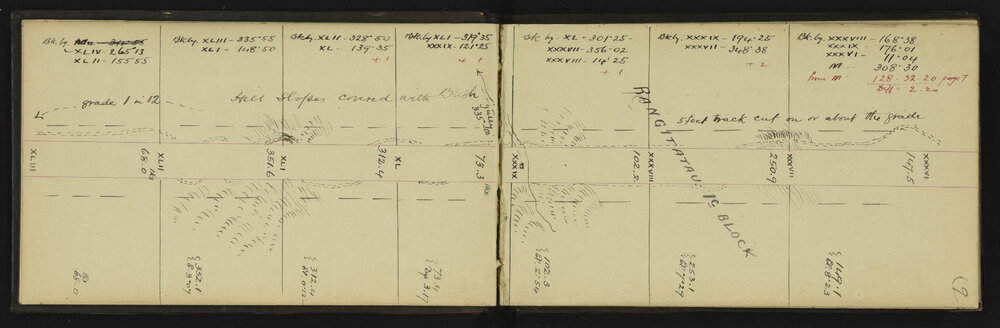 Bk. by. XLIII - 335·55
XLIV - 265·13
XLI - 148·50
XLII - 155·55
Bk. by. XLII - 328·50
XL - 139·35
+ 1
Bk by XLI - 319·35
XXXIX - 121·25
+ 1
Bk by. XL - 301·25
XXXVII - 356·02
XXXVIII - 14·25
+ 1
Bk. by. XXXIX - 194·25
XXXVII - 348·38
+ 2
Bk. by. XXXVIII - 168·38
XXXIX - 176·01
XXXVI - 11·04
M - 308·30
from M - 128·32·20 page 7
Diff = 2·20
grade 1 in 12
Hill Slopes covered with Bush
gully 20
335
5 feet track cut on or about this grade
RANGITATAU 1c BLOCK
XLIII
68.0
XLII
351.6
XLI
312.4
XL
73.3
XXXIX
102.2
XXXVIII
250.9
XXXVII
147.5
XXXVI
68.0
352.1
312.4
73.4
102.3
253.1
149.1
9